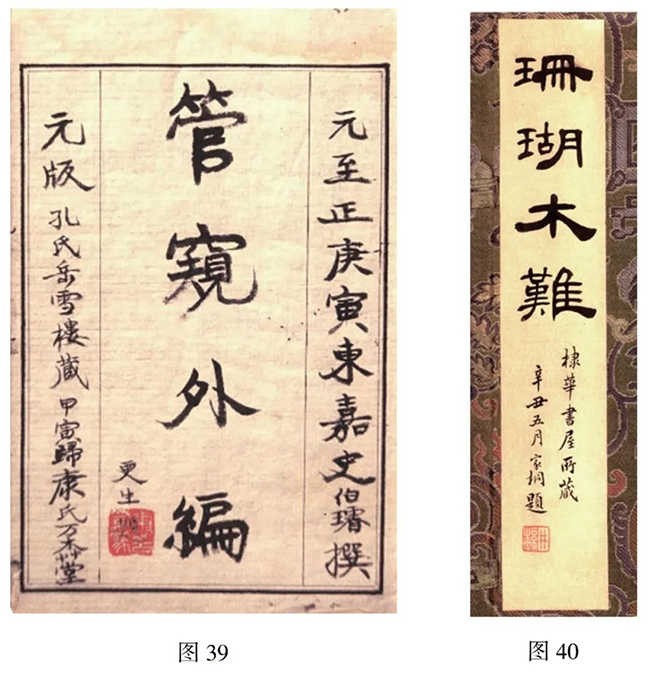 元至正庚寅東嘉史伯璿撰
管窺外編
更生
元版 孔氏岳雪樓藏 甲寅歸康氏万木草堂
图 39
珊瑚木難
棣華書屋所藏
辛丑五月家棡題
图 40